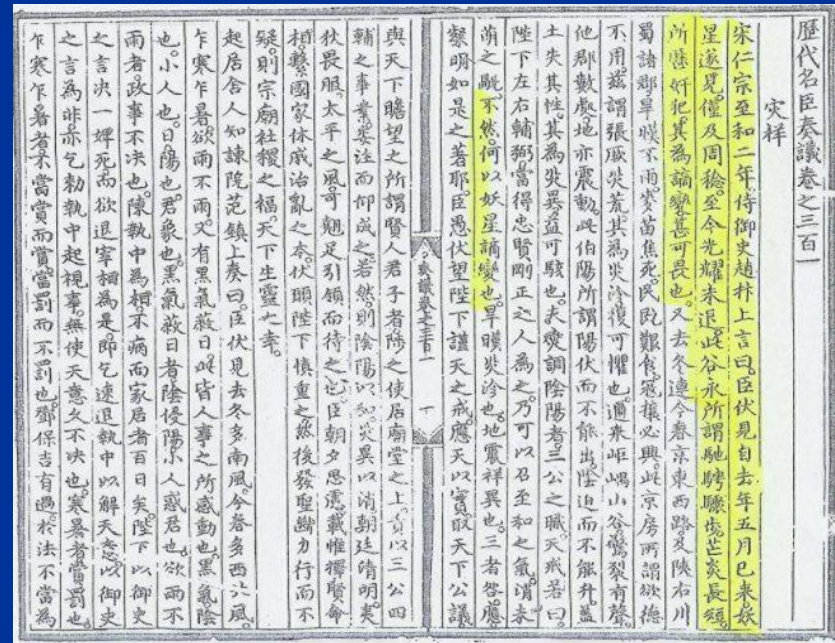 歷代名臣奏議卷之三百一
灾祥
宋仁宗至和二年侍御史趙抃上言曰臣伏見自去年五月已來妖
星遂見僅及周稔至今光耀未退此谷永所謂馳騁驟步芒炎長短
所歷奸犯其為謫變甚可畏也又去冬連今春京東西路及陝右川
蜀諸郡旱暵不雨麥苗焦死民既艱食寇攘必興此京房所謂欲德
不用茲謂張厥災荒其為災沴復可懼也適來岠嵎山谷驚裂有聲
他郡數處地亦震動此伯陽所謂陽伏而不能出陰迫而不能升蓋
土失其性其為災異益可駭也夫燮調陰陽者三公之職天戒若曰
陛下左右輔弼當得忠賢剛正之人為之乃可以召至和之氣消未
萌之不然何以妖星謫變也旱暵災沴也地震祥異也三者咎應
如是之著耶臣愚伏望陛下謹天之戒應天以實取天下公議
奏議卷之三百一 一
與天下瞻望之所謂賢人君子者陟之使居廟堂之上責以三公四
輔之事業委注而仰成之若然則陰陽以和災異以消朝廷清明夷
狄畏服太平之風可翹足引領而待之也臣朝夕思慮載惟擢賢命
相繫國家休戚治亂之本伏願陛下慎重之然後發聖斷力行而不
疑則宗廟社稷之福天下生靈之幸
起居舍人知諫院范鎮上奏曰臣伏見去冬多南風今春多西北風
乍寒乍暑欲雨不雨又有黑氣蔽日此皆人事之所感動也黑氣陰
也小人也日陽也君象也黑氣蔽日者陰侵陽小人惑君也欲雨不
雨者政事不決也陳執中為相不病而家居者百日矣陛下以御史
之言決一婢死而欲退宰相為是即乞速退執中以解天意以御史
之言為非亦乞勅執中起視事無使天意久不決也寒暑者賞罰也
乍寒乍暑者不當賞而賞當罰而不罰也鄧保吉有過於法不當為